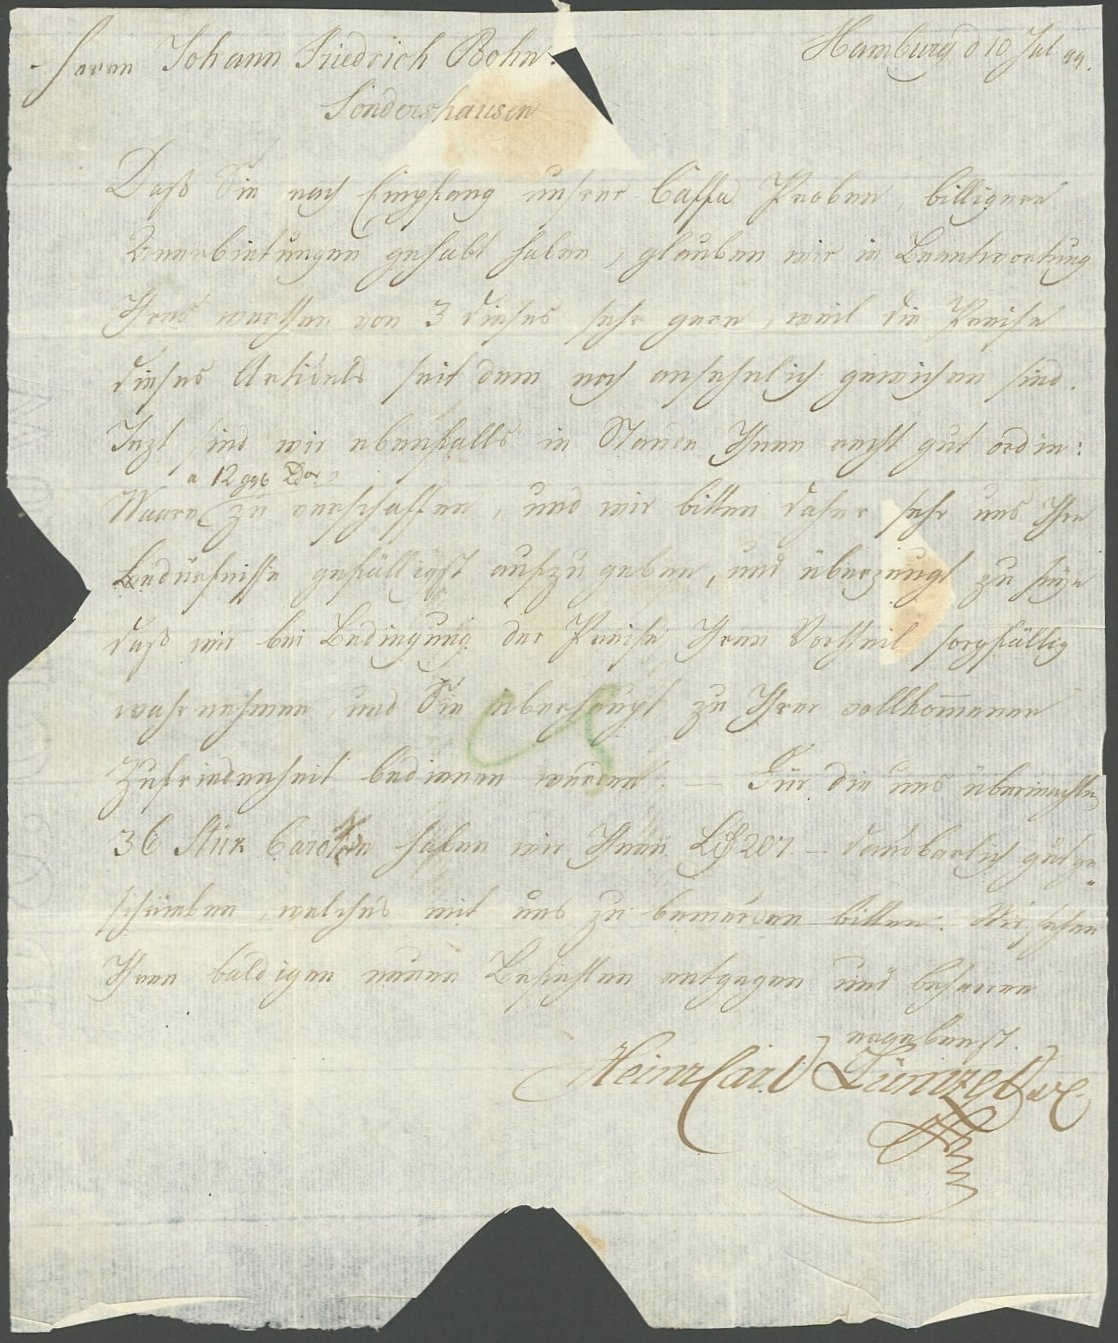 Herrn Johann Friedrich Bohn. Hamburg d 10 Jul 99.
Sondershausen
Daß Sie nach Empfang unsrer Caffee Proben, billigere
Anerbietungen gehabt haben, glauben wir in Beantwortung
Ihres werthen von 3 dieses sehr gern, weil die Preise
dieses Articels seit dem noch ansehnlich gewichen sind.
Jezt sind wir ebenfalls in Stande Ihnen recht gut ordin:
a 12 ggb
Waare zu verschaffen, und wir bitten daher sehr uns Ihre
Bedürfnisse gefälligst aufzugeben, und überzeugt zu seyn
daß wir bei Bedingung der Preise Ihren Vortheil sorgfältig
wahrnehmen, und Sie überhaupt zu Ihrer vollkom̅enen
Zufriedenheit bedienen werden. — Für die uns übermachten
36 Stük Carolin haben wir Ihnen 207 — dankbarlich gutge-
schrieben, welches mit uns zu bemerken bitten. Wir sehen
Ihren baldigen neuen Befehlen entgegen und beharren
ergebenst
Heinr Carl